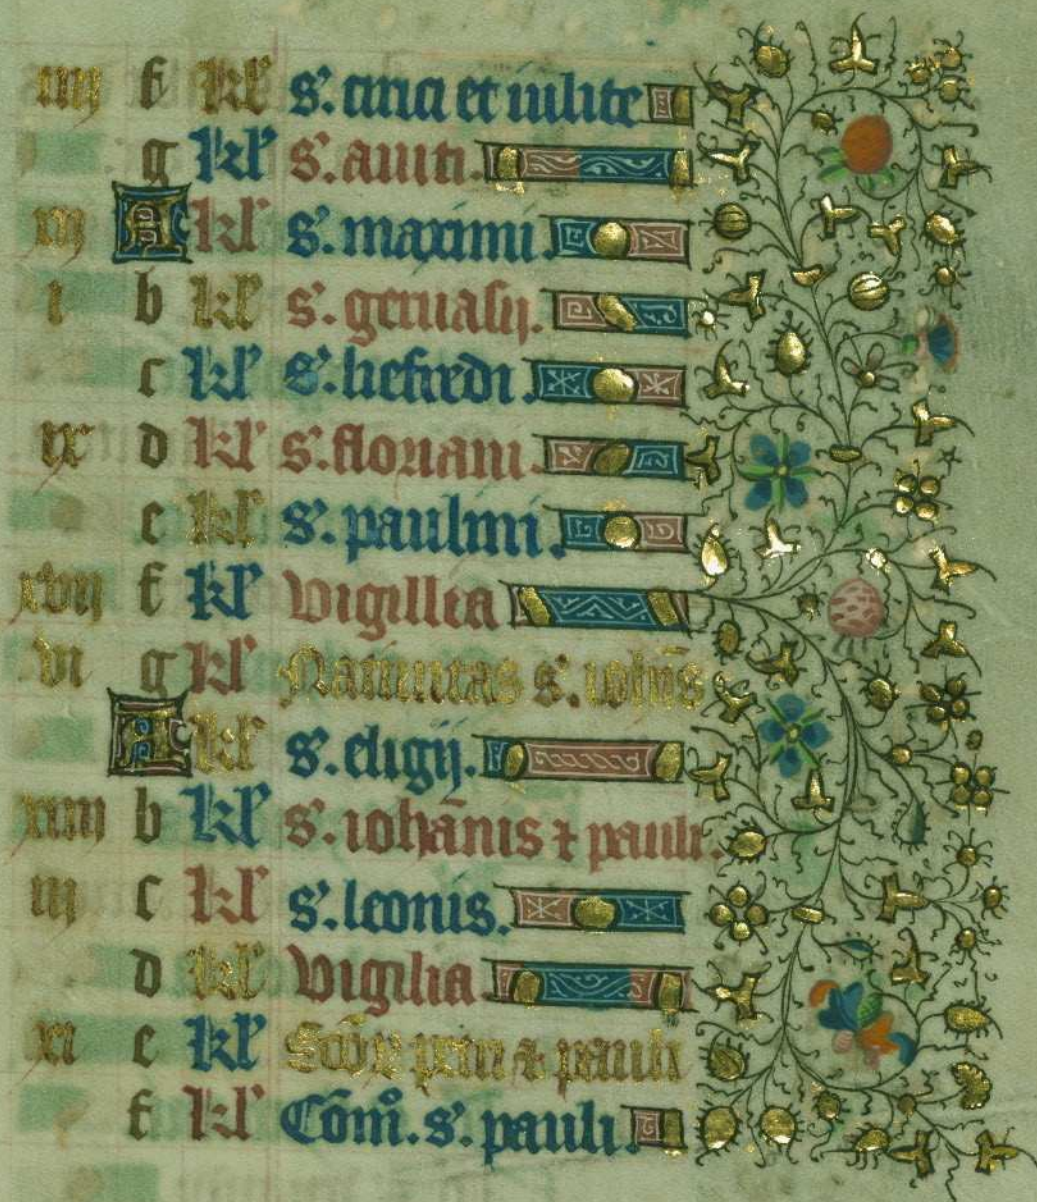 iiii f kl' s'. cirici et iulite
g kl' s'. auiti.
xii A kl' s'. maximi.
i b kl' s'. geruasij.
c kl' s'. liefredi.
ix d kl' s'. floriani.
e kl' s'. paulini.
xvii f kl' Vigillia
vi g kl' Natiuitas s'. ioh̄is
A kl' s'. eligij.
xiiii b kl' s'. iohānis ⁊ pauli.
iii c kl' s'. leonis.
d kl' Vigilia
xi e kl' petri ⁊ pauli
f kl' Cōm̄. s'. pauli